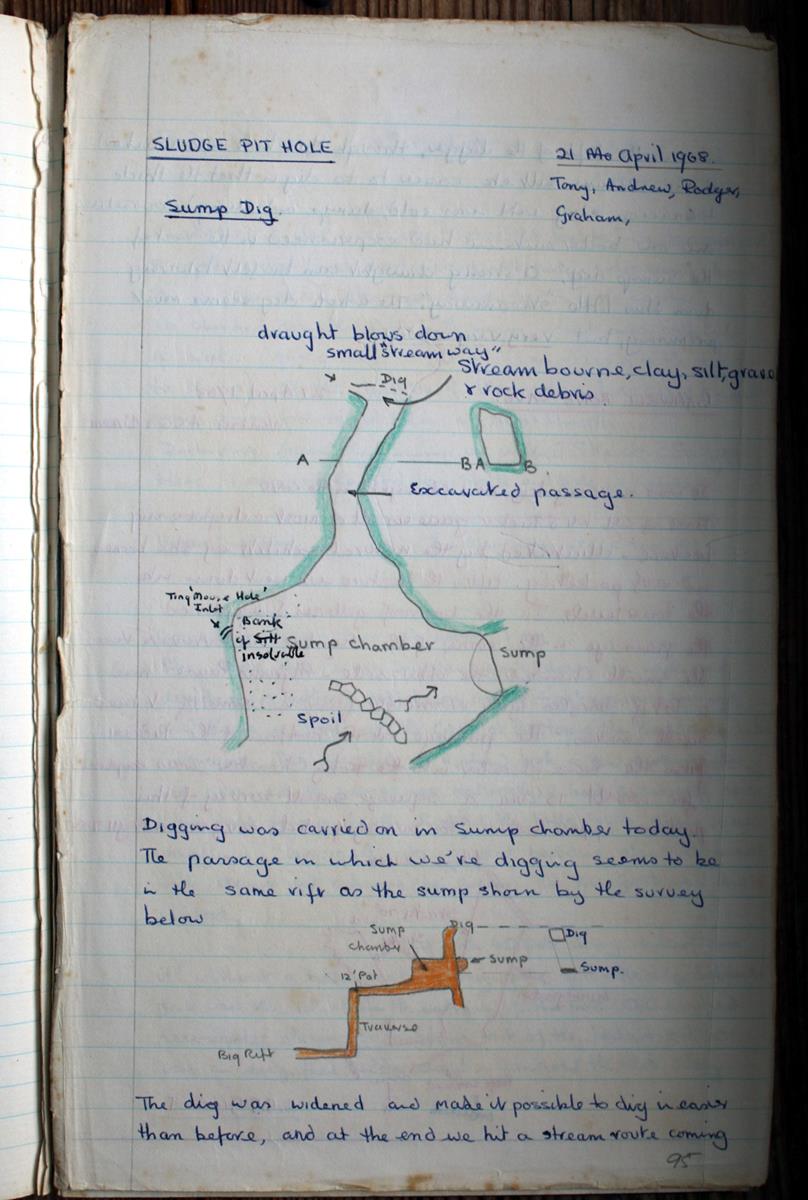 SLUDGE PIT HOLE
21 April 1968.
Tony, Andrew, Rodger,
Graham,
Sump Dig.
draught blows down
small "stream way"
Dig
Stream bourne, clay, silt, grave
& rock debris.
A
B A B
Excavated passage.
Tiny 'Mouse Hole'
Inlet
Bank
of Silt
insolvable
Sump chamber
Sump
Spoil
Digging was carried on in Sump chamber today.
The passage in which we've digging seems to be
in the same rift as the sump shown by the survey
below
Sump
chamber
Dig
Dig
Sump
Sump.
12' Pot
Traverse
Big Rift
The dig was widened and made it possible to dig in easier
than before, and at the end we hit a stream route coming
95